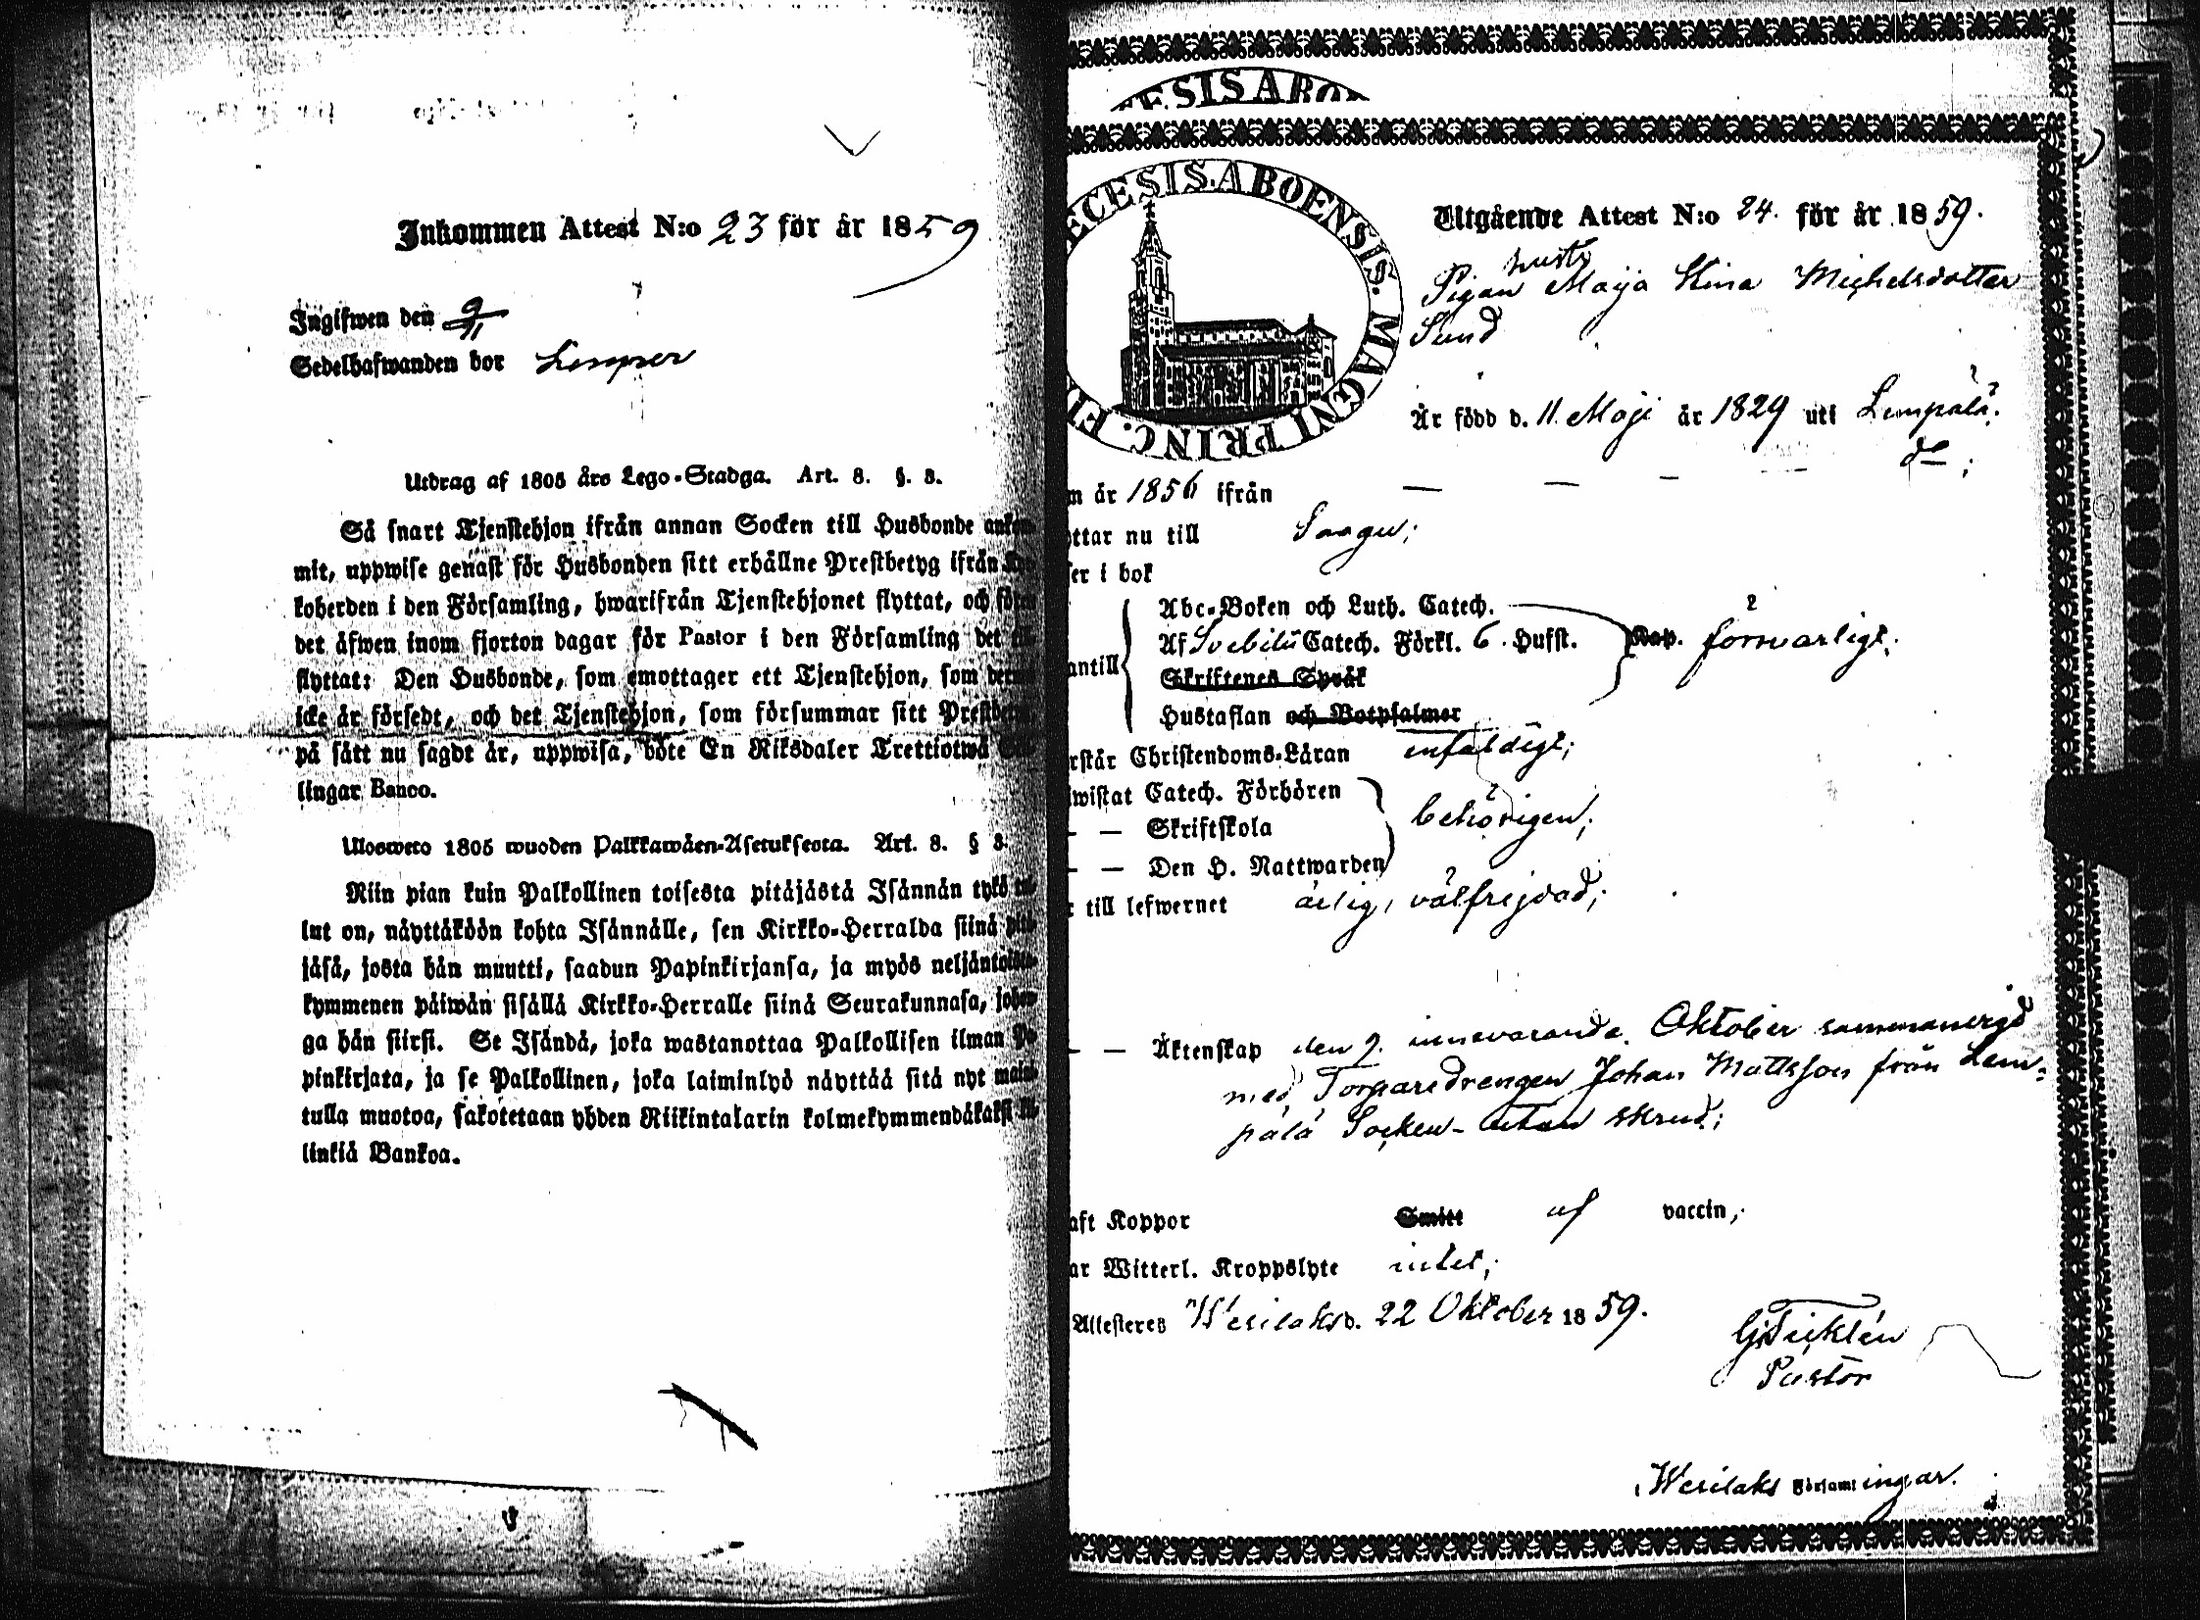 Inkommen Attest N:o 23 för år 1859
Ingifwen den 9/11
Sedelhafwanden bor Lemper
Utdrag af 1805 års Lego-Stadga. Art. 8. §. 3.
Så snart Tjenstehjon ifrån annan Socken till Husbonde ankom
mit, uppwise genast för Husbonden sitt erhållne Prestbetyg ifrån
koherden i den Församling, hwarifrån Tjenstehjonet flyttat, och
det äfwen inom fjorton dagar för Pastor i den Församling det
flyttat: Den Husbonde, som emottager ett Tjenstehjon, som
icke är försedt, och det Tjenstehjon, som försummar sitt
på sätt nu sagdt är, uppwisa, böte En Riksdaler Trettiotwå
lingar Banco.
Ulosweto 1805 wuoden Palkkawäen-Asetuksesta. Art. 8. § 3.
Niin pian kuin Palkollinen toisesta pitäjästä Isännän tykö
lut on, näyttäköön kohta Isännälle, sen Kirkko-Herralda siinä
jäsä, josta hän muutti, saadun Papinkirjansa, ja myös neljäntoista-
kymmenen päiwän sisällä Kirkko-Herralle siinä Seurakunnasa,
ga hän siirsi. Se Isändä, joka wastanottaa Palkollisen ilman
pinkirjata, ja se Palkollinen, joka laiminlyö näyttää sitä nyt
tulla muotoa, sakotetaan yhden Riikintalarin kolmekymmendäkaksi
linkiä Bankoa.
SIS ABO
ECESIS.ABOENSIS. MAGNI PRINC. FI
Utgående Attest N:o 24. för år 1859.
hustr
Pigan Maija Stina Michelsdotter
Sund
Är född d. 11. Maji år 1829 uti Lempälä.
m år 1856 ifrån — — — — d:o;
ttar nu till Saagu;
ser i bok
Abc-Boken och Luth. Catech.
Af Svebilii Catech. Förkl. 6. Hufst. Kap. försvarligt;
antill
Skriftenes Språk
Hustaflan och Botpsalmer
rstår Christendoms-Läran enfaldigt;
wistat Catech. Förhören
— — Skriftskola behörigen;
— — Den H. Nattwarden
till lefwernet ärlig, välfrejdad;
— — Äktenskap den 9. innevarande Oktober sammanvigd
med Torparedrengen Johan Mattsson från Lem-
pälä Socken - utan skrud;
aft Koppor Smitt af vaccin,
ar Witterl. Kroppslyte intet;
Attesteres Wesilaks d. 22 Oktober 1859.
Pastor
Wesilaks Församlingar.